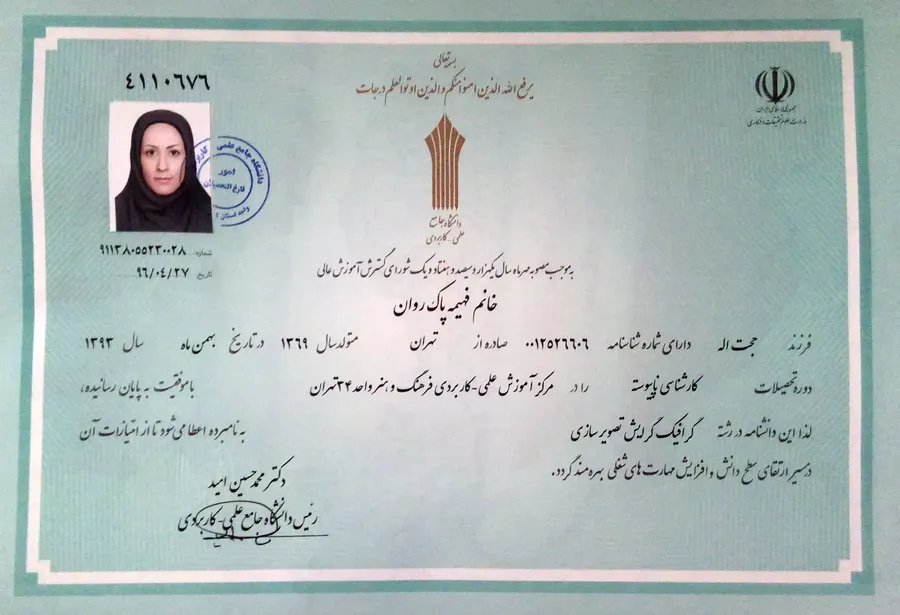 بسمه تعالی
یرفع الله الذین امنوا منکم و الذین اوتوالعلم درجات
جمهوری اسلامی ایران
وزارت علوم، تحقیقات و فناوری
۴۱۱۰۶۷۶
دانشگاه جامع علمی کاربردی
امور
فارغ التحصیلان
واحد استان
دانشگاه جامع
علمی - کاربردی
شماره: ۹۱۱۳۸۰۵۵۲۳۰۰۲۸
تاریخ: ۹۶/۰۴/۲۷
به موجب مصوبه مهرماه سال یکهزار و سیصد و هفتاد و یک شورای گسترش آموزش عالی
خانم فهیمه پاک روان
فرزند حجت اله دارای شماره شناسنامه ۰۰۱۲۵۲۶۶۰۶ صادره از تهران متولد سال ۱۳۶۹ در تاریخ بهمن ماه سال ۱۳۹۳
دوره تحصیلات کارشناسی ناپیوسته را در مرکز آموزش علمی-کاربردی فرهنگ و هنر واحد ۳۴ تهران با موفقیت به پایان رسانیده،
لذا این دانشنامه در رشته گرافیک گرایش تصویر سازی به نامبرده اعطا می شود تا از امتیازات آن
در مسیر ارتقای سطح دانش و افزایش مهارت های شغلی بهره مند گردد.
دکتر محمدحسین امید
رئیس دانشگاه جامع علمی - کاربردی